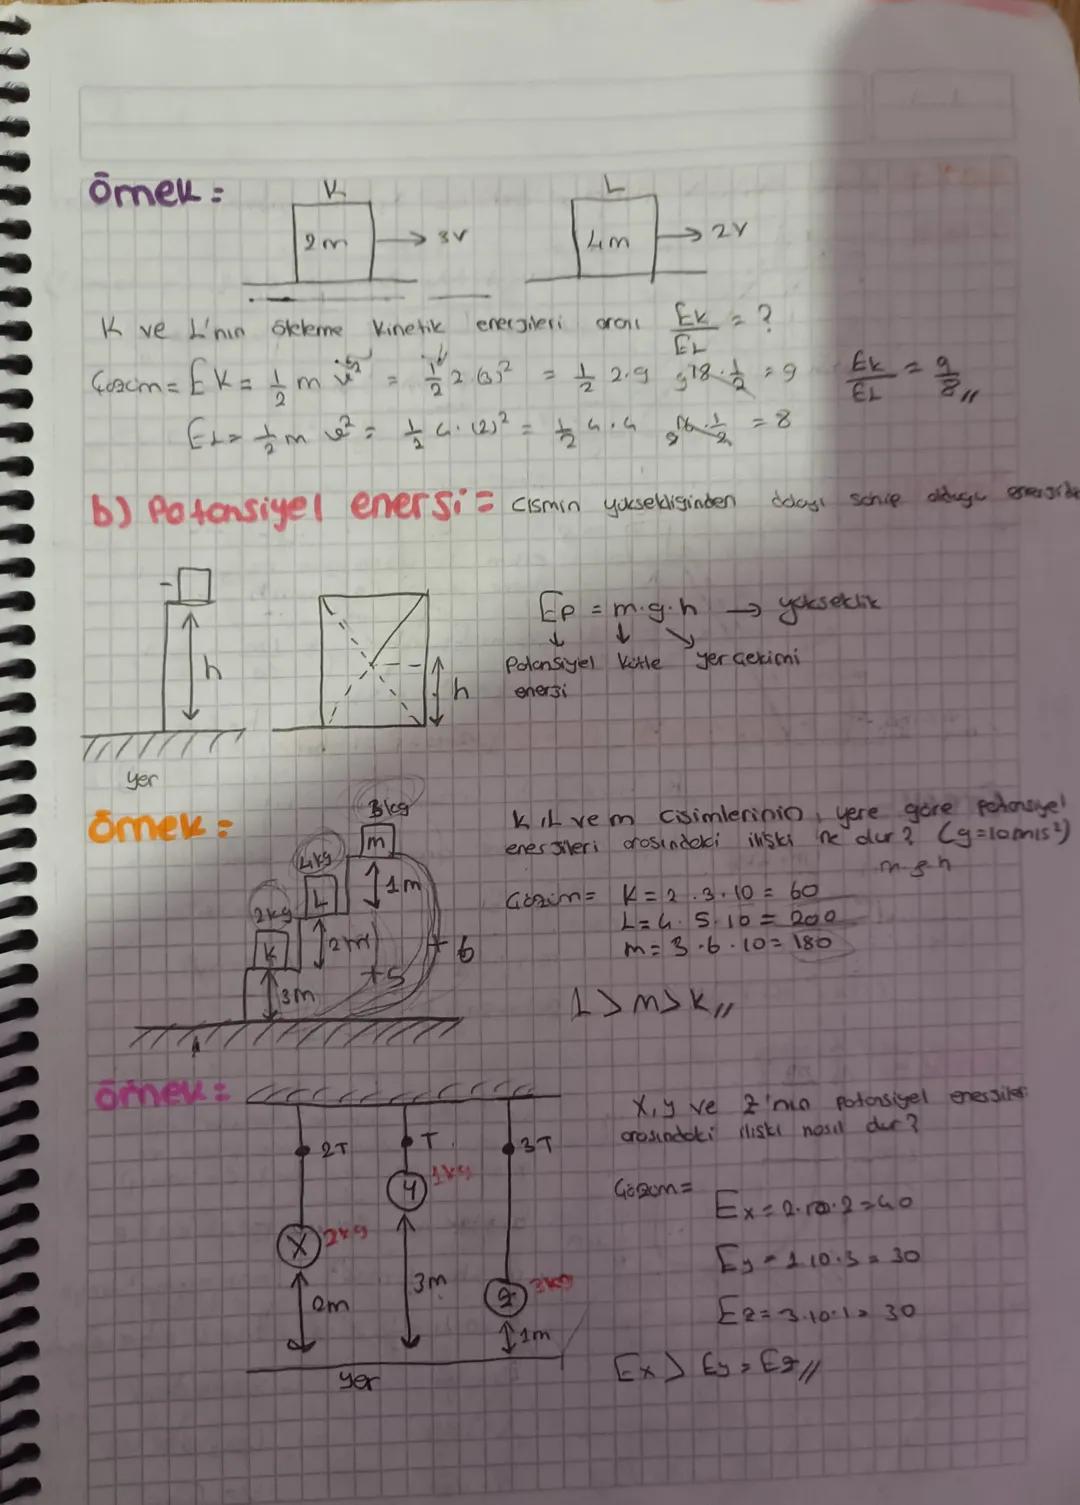 Örnek =
K
L
2m
3V
4m
2V
K ve L'nin öteleme kinetik enerjileri oranı EK/EL = ?
Çözüm = EK = 1/2 m v² = 1/2 2.(3)² = 1/2 2.9 18.1/2 = 9 EK/EL = 9/8 //
EL = 1/2 m v² = 1/2 4.(2)² = 1/2 4.4 16.1/2 = 8
b) Potansiyel enersi = cismin yüksekliğinden dolayı sahip olduğu
h
h
yer
Ep = m.g.h → yükseklik
Potansiyel kütle yer çekimi
enersi
Örnek =
3kg
m
4kg
L
1m
2kg
K
2m
3m
+5
+ 6
K, L ve m cisimlerinin, yere göre potansiyel
enerjileri arasındaki ilişki ne dur? (g=10m/s²)
m.g.h
Çözüm = K = 2.3.10 = 60
L = 4.5.10 = 200
m = 3.6.10 = 180
L > m > K //
Örnek =
2T
T
3T
Y
1kg
X
2kg
3m
Z
3kg
2m
1m
yer
X, y ve Z'nin potansiyel enerjiler
arasındaki ilişki nasıl dur?
Çözüm =
Ex = 2.10.2 = 40
Ey = 1.10.3 = 30
Ez = 3.10.1 = 30
Ex > Ey = Ez //